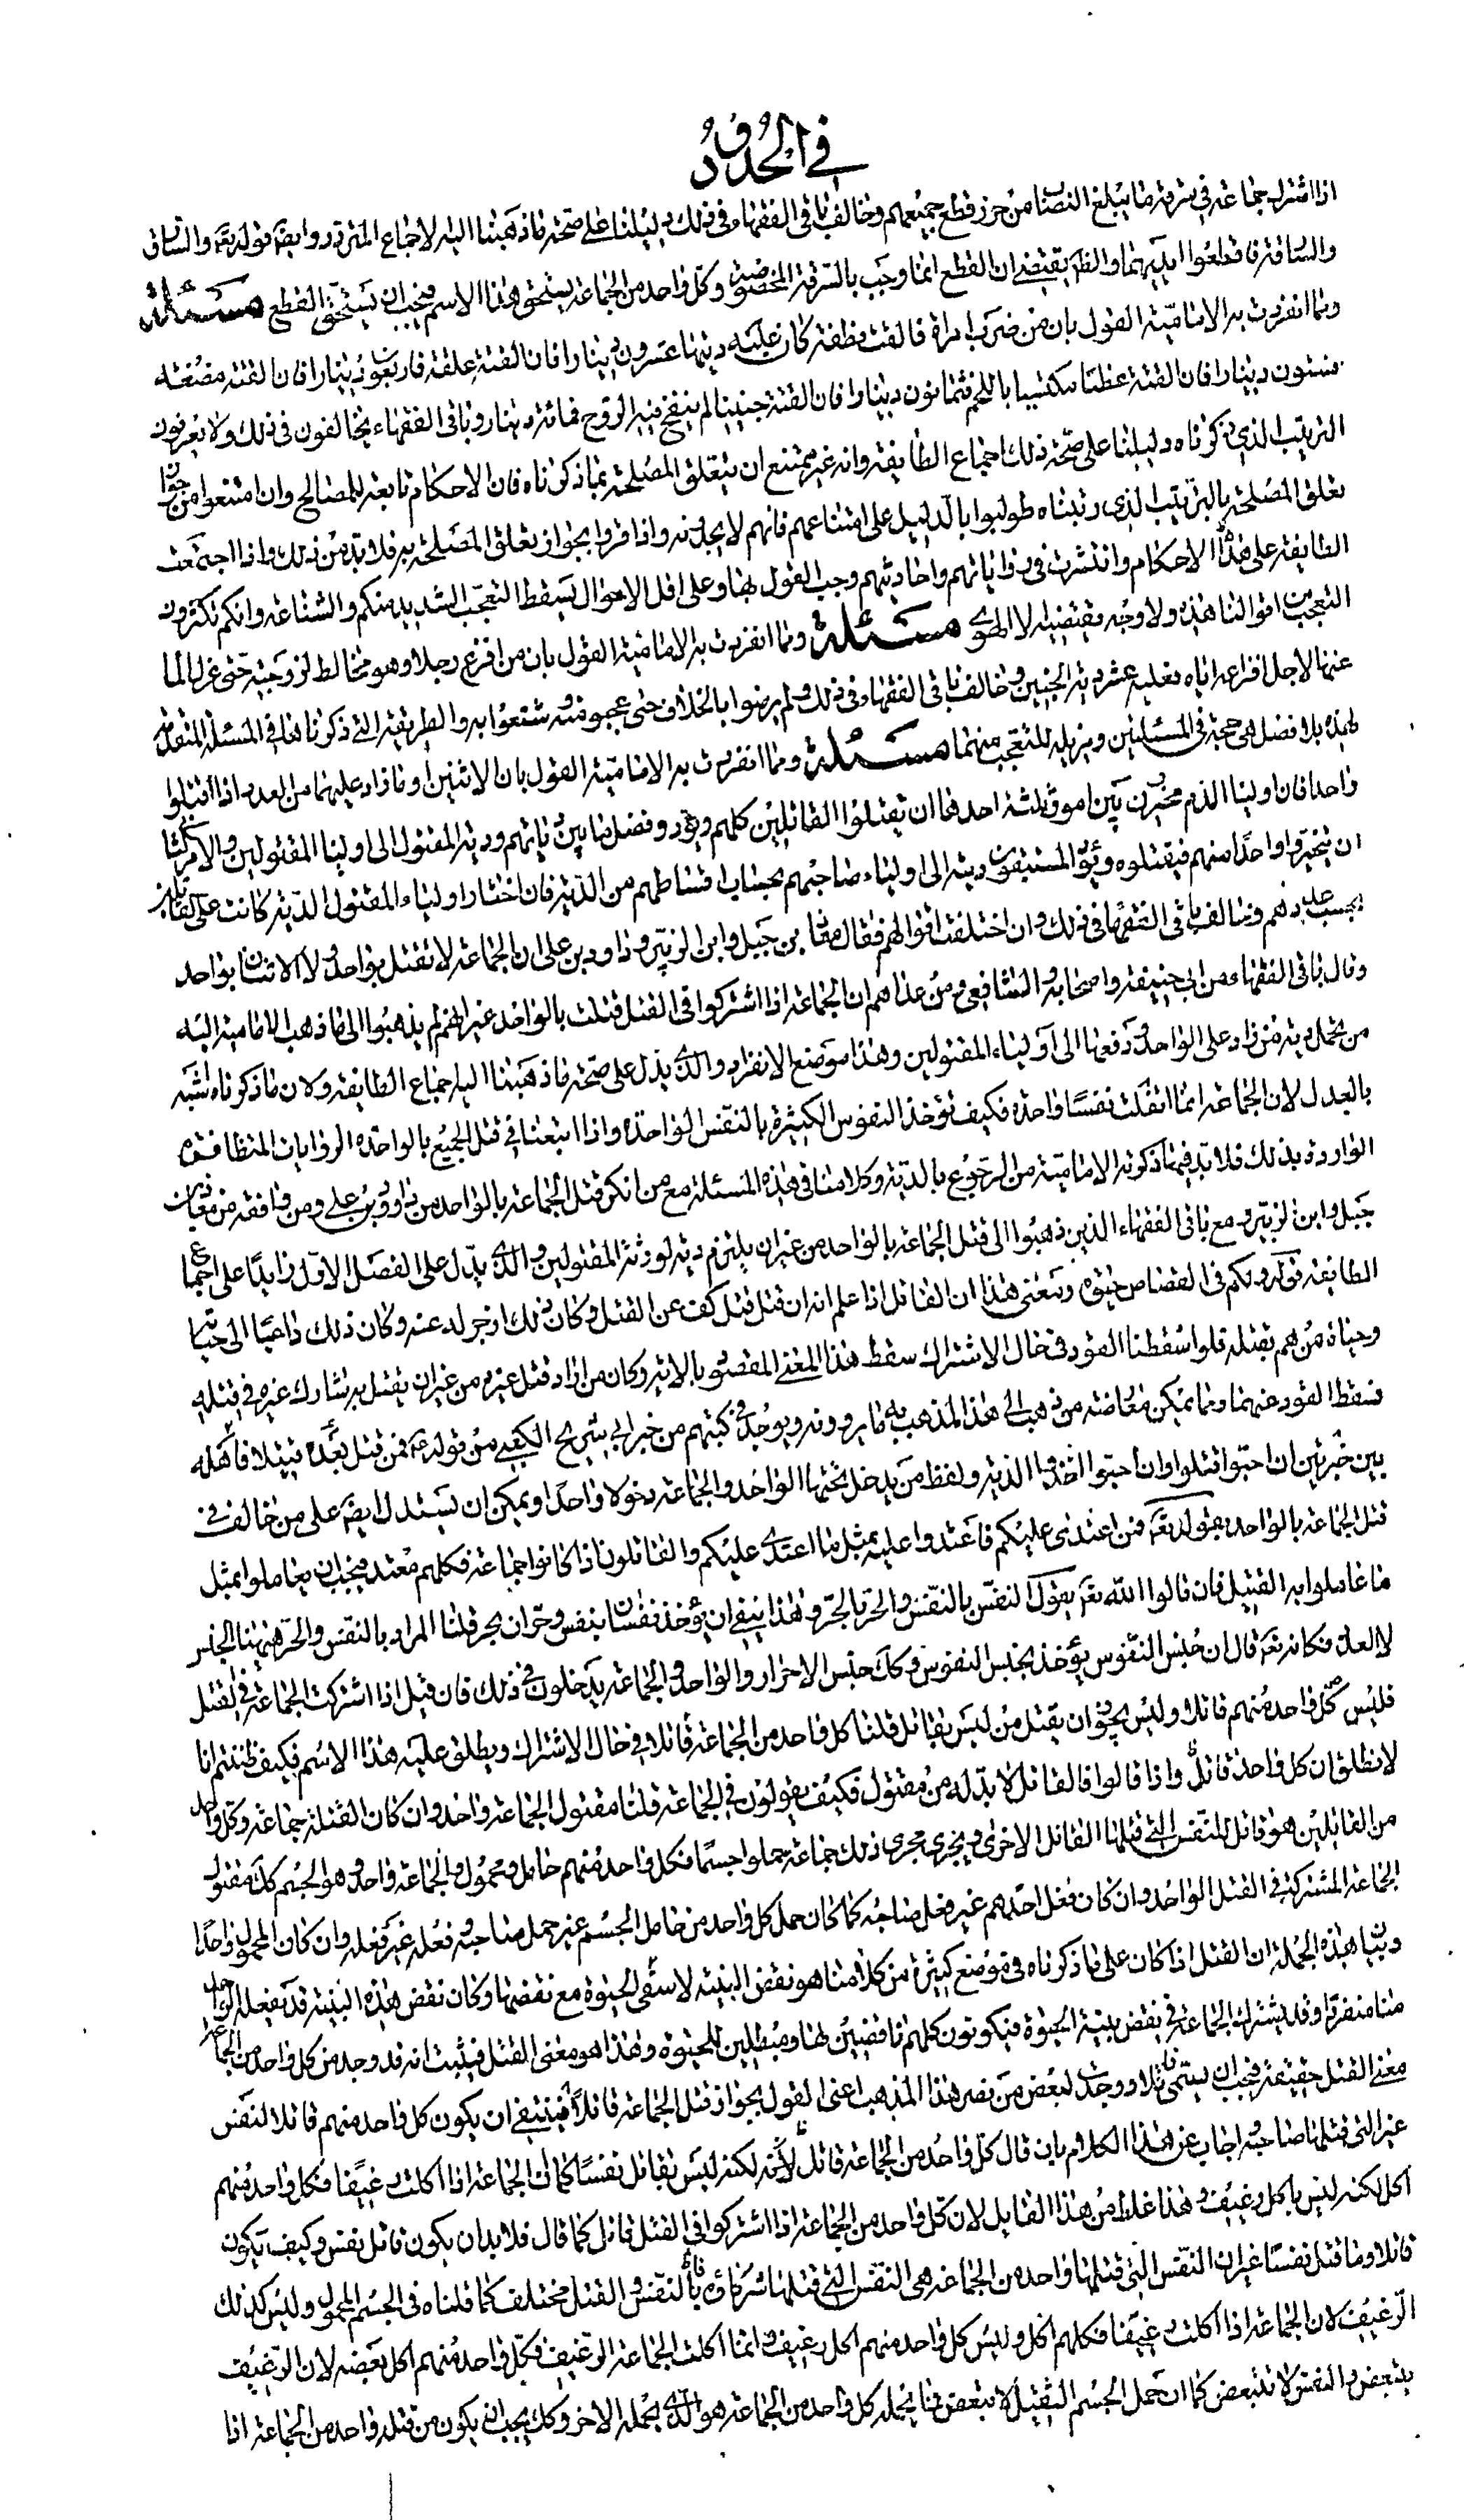 في الحدود
اذا اشترك جماعة في سرقة ما يبلغ النصاب من حرز قطع جميعهم وخالف باقي الفقهاء في ذلك دليلنا على صحة ما ذهبنا اليه الاجماع المتردد وايضا قوله تع والسارق
والسارقة فاقطعوا ايديهما والظ يقتضي ان القطع انما وجب بالسرقة المخصوصة وكل واحد من الجماعة يستحق هذا الاسم فيجب ان يستحق القطع مسئلة
ومما انفردت به الامامية القول بان من ضرب امراة فالقت نطفة كان عليه ديتها عشرون دينارا فان القت علقة فاربعون دينارا فان القت مضغة
فستون دينارا فان القت عظما مكتسيا باللحم فثمانون دينارا فان القت جنينا لم ينفخ فيه الروح فمائة دينار وباقي الفقهاء يخالفون في ذلك ولا يعرفون
الترتيب الذي ذكرناه دليلنا على صحة ذلك اجماع الطايفة وانه غير ممتنع ان يتعلق المصلحة بما ذكرناه فان الاحكام تابعة للمصالح وان امتنعوا من جواز
تعلق المصلحة بالترتيب الذي رتبناه طولبوا بالدليل على امتناعهم فانهم لا يجدونه واذا اقروا بجواز تعلق المصلحة به فلا بد من ذلك واذا اجتمعت
الطايفة على هذا الاحكام وانتشرت في رواياتهم واحاديثهم وجب القول بها وعلى اقل الاحوال يسقط التعجب الشديد منكم والشناعة وانكم تكثرون
التعجب من اقوالنا هذه ولا وجه يقتضيه الا الهوى مسئلة ومما انفردت به الامامية القول بان من افزع رجلا وهو مخالط لزوجته حتى عزل الماء
عنها لاجل افزاعه اياه فعليه عشر دية الجنين وخالف باقي الفقهاء في ذلك ولم يرضوا بالخلاف حتى عجبوا منه وشنعوا به والطريقة التي ذكرناها في المسئلة المتقدمة
لهذه بلا فصل هي حجة في المسئلتين ومزيلة للتعجب منهما مسئلة ومما انفردت به الامامية القول بان الاثنين او ما زاد عليهما من العدد اذا اقتلوا
واحدا فان اولياء الدم مخيرون بين امور ثلثة احدها ان يقتلوا القاتلين كلهم ويؤدوا فضل ما بين دياتهم ودية المقتول الى اولياء المقتولين والامر الثاني
ان يتخيروا واحدا منهم فيقتلوه ويؤدي المستبقون ديته الى اولياء صاحبهم بحساب اقساطهم من الدية فان اختار اولياء المقتول الدية كانت على القاتلين
بحسب عددهم وخالف باقي الفقهاء في ذلك وان اختلفت اقوالهم فقال معاذ بن جبل وابن الزبير وداود بن على ان الجماعة لا تقتل بواحد ولا الاثنان بواحد
وقال باقي الفقهاء من ابي حنيفة واصحابه والشافعي ومن عداهم ان الجماعة اذا اشتركوا في القتل قتلت بالواحد غير انهم لم يذهبوا الى ما ذهب الامامية اليه
من تحمل دية من زاد على الواحد ودفعها الى اولياء المقتولين وهذا موضع الانفراد والذي يدل على صحة ما ذهبنا اليه اجماع الطايفة ولان ما ذكرناه اشبه
بالعدل لان الجماعة انما اتلفت نفسا واحدة فكيف تؤخذ النفوس الكثيرة بالنفس الواحدة واذا اتبعنا في قتل الجميع بالواحدة الروايات المتظافرة
الواردة بذلك فلا بد فيما ذكرته الامامية من الرجوع بالدية وكلامنا في هذه المسئلة مع من انكر قتل الجماعة بالواحد من داود بن على ومن وافقه من معاذ بن
جبل وابن الزبير ومع باقي الفقهاء الذين ذهبوا الى قتل الجماعة بالواحد من غير ان يلتزم دية لورثة المقتولين والذي يدل على الفصل الاول زايدا على اجماع
الطايفة قوله تع ولكم في القصاص حيوة ومعنى هذا ان القاتل اذا علم انه ان قتل قتل كف عن القتل وكان ذلك ازجر له عنه وكان ذلك داعيا الى حياته
وحياة من هم بقتله فلو اسقطنا القود في حال الاشتراك سقط هذا المعنى المقصود بالاية وكان من اراد قتل غيره من غير ان يقتل به شارك غيره في قتله
فسقط القود عنهما ومما يمكن معارضته من ذهب الى هذا المذهب به ما يروونه ويوجد في كتبهم من خبر ابي شريح الكعبي من قوله ع فمن قتل بعده قتيلا فاهله
بين خيرتين ان احبوا قتلوا وان احبوا اخذوا الدية ولفظ من يدخل تحتها الواحد والجماعة دخولا واحدا ويمكن ان يستدل ايضا على من خالف في
قتل الجماعة بالواحد بقوله تع فمن اعتدى عليكم فاعتدوا عليه بمثل ما اعتدى عليكم والقاتلون اذا كانوا جماعة فكلهم معتد فيجب ان يعاملوا بمثل
ما عاملوا به القتيل فان قالوا الله تع يقول النفس بالنفس والحر بالحر وهذا ينفي ان يؤخذ نفسان بنفس وحران بحر قلنا المراد بالنفس والحر هيهنا الجنس
لا العدد فكانه تع قال ان جنس النفوس يؤخذ بجنس النفوس وكك جنس الاحرار والواحد والجماعة يدخلون في ذلك فان قيل اذا اشتركت الجماعة في القتل
فليس كل واحد منهم قاتلا وليس يجوز ان يقتل من ليس بقاتل قلنا كل واحد من الجماعة قاتلا في حال الاشتراك ويطلق عليه هذا الاسم فكيف ظننتم انا
لا نطلق ان كل واحد قاتل واذا قالوا فالقاتل لا بد له من مقتول فكيف يقولون في الجماعة قلنا مقتول الجماعة واحد وان كان القتلة جماعة وكل واحد
من القاتلين هو قاتل للنفس التي قتلها القاتل الاخر ويجري مجرى ذلك جماعة حملوا جسما فكل واحد منهم حامل ومحمول الجماعة واحد وهو الجسم كك مقتول
الجماعة المشتركة في القتل الواحد وان كان فعل احدهم غير فعل صاحبه كما كان حمل كل واحد من حامل الجسم غير حمل صاحبه وفعله غير فعله وان كان المحمول واحدا
وبيان هذه الجملة ان القتل اذا كان على ما ذكرناه في مواضع كثيرة من كلامنا هو نقض البنية لا تبقى الحيوة مع نقضها وكان نقض هذه البنية قد يفعله الواحد
منا منفردا وقد يشترك الجماعة في نقض بنية الحيوة فيكونون كلهم ناقضين لها ومبطلين للحيوة وهذا هو معنى القتل فيثبت انه قد وجد من كل واحد من الجماعة
معنى القتل حقيقة فيجب ان يسمى قاتلا ووجدت لبعض من نصر هذا المذهب اعني القول بجواز قتل الجماعة قائلا فينبغي ان يكون كل واحد منهم قاتلا لنفس
غير التي قتلها صاحبه اجاب عن هذا الكلام بان قال كل واحد من الجماعة قاتل لانه لكنه ليس بقاتل نفسا كما ان الجماعة اذا اكلت رغيفا فكل واحد منهم
اكل لكنه ليس باكل رغيف وهذا غلط من هذا القايل لان كل واحد من الجماعة اذا اشتركوا في القتل قاتل كما قال فلا بد ان يكون قاتل نفس وكيف يكون
قاتلا وما قتل نفسا غير ان النفس التي قتلها واحد من الجماعة هي النفس التي قتلها شركاؤه والقتل مختلف كما قلناه في الجسم المحمول وليس كذلك
الرغيف لان الجماعة اذا اكلت رغيفا فكلهم اكل وليس كل واحد منهم اكل رغيف وانما اكلت الجماعة الرغيف فكل واحد منهم اكل بعضه لان الرغيف
يتبعض والنفس لا تتبعض كما ان حمل الجسم الثقيل لا يتبعض فما يحمله كل واحد من الجماعة هو الذي يحمله الاخر وكك يجب ان يكون من قتله واحد من الجماعة اذا